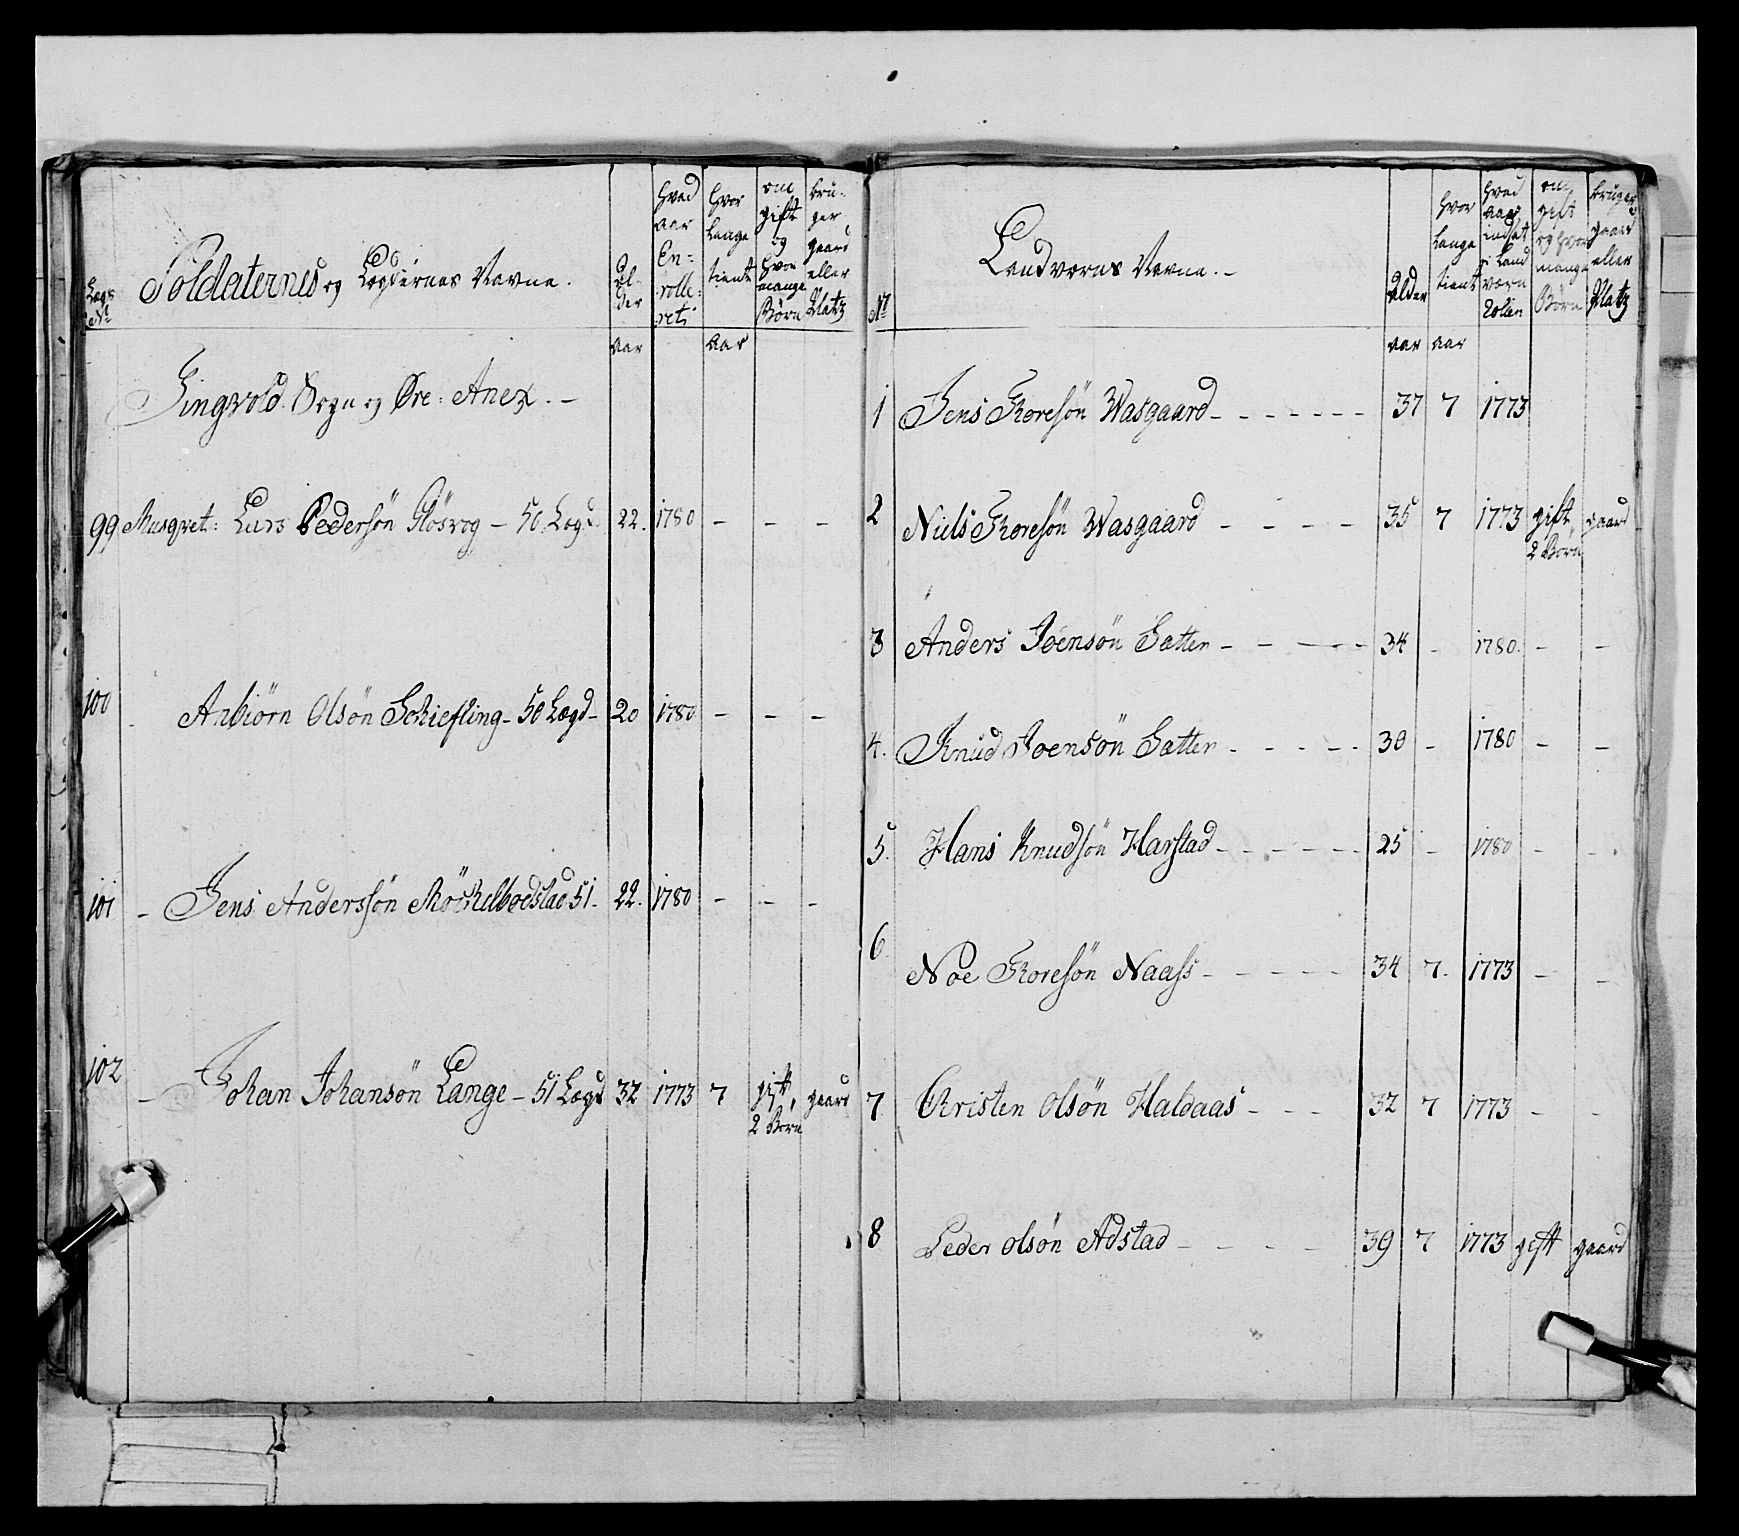 Lægs No
Soldaternes og Lægdernes Navne.
Al-
der
hvad
aar
En-
rolle-
ret
hvor
længe
tient
om
gift
og
hvor
mange
Børn
bru-
ger
gaard
eller
Platz
aar
aar
Tingvold Sogn og Øre Anex. -
99 Musqvet: Lars Pedersön - 50 Lægd 22. 1780 - - -
100 - Anbiörn Olsön Schiefling - 50 Lægd - 20 1780 - - -
101 - Jens Anderssön 51. 22. 1780 - - -
102 - Johan Johansön Lange - 51 Lægd 32 1773 7 gift, gaard
2 Børn
No
Landværns Navne. -
Alder
hvor
længe
tient
hvad
aar
indsat
i Land
værn
Rollen
om
gift
og hvor
mange
Børn
bruger
gaard
eller
Platz
aar aar
1 Jens Toresön Wasgaard - - - - - - 37 7 1773
2 Niels Toresön Wasgaard - - - - 35 7 1773 gift, gaard
2 Børn
3 Anders Joensön Sætter - - - - - 34 - 1780. - -
4. Knud Joensön Sætter - - - - - 30 - 1780 - -
5. Hans Knudsön Harstad - - - - - - 25 - 1780 - -
6 Noe Toresön Naass - - - - - 34 7. 1773 - -
7 Christen Olsön Haldaas - - - 32 7 1773 - -
8 Peder Olsön Adstad - - - - 39 7 1773 gift gaard